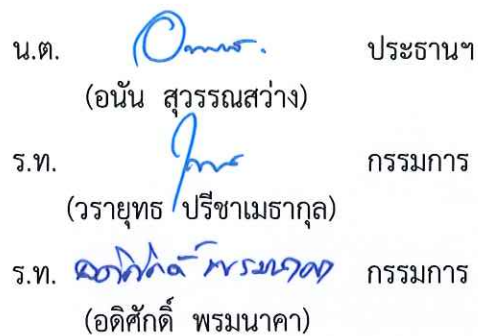 น.ต. ประธานฯ
(อนัน สุวรรณสว่าง)
ร.ท. กรรมการ
(วรายุทธ ปรีชาเมธากุล)
ร.ท. อดิศักดิ์ พรมนาคา กรรมการ
(อดิศักดิ์ พรมนาคา)